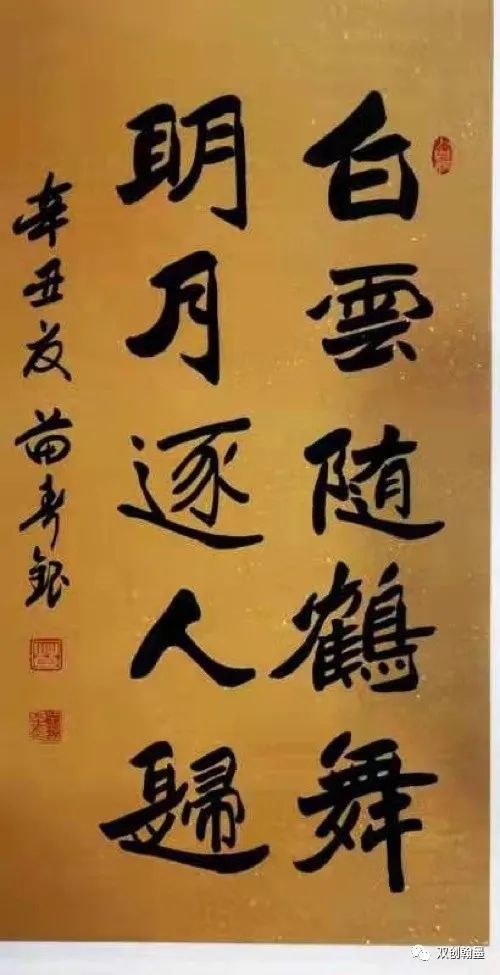 白雲随鶴舞
明月逐人歸
辛丑夏苗春銀
双创翰墨